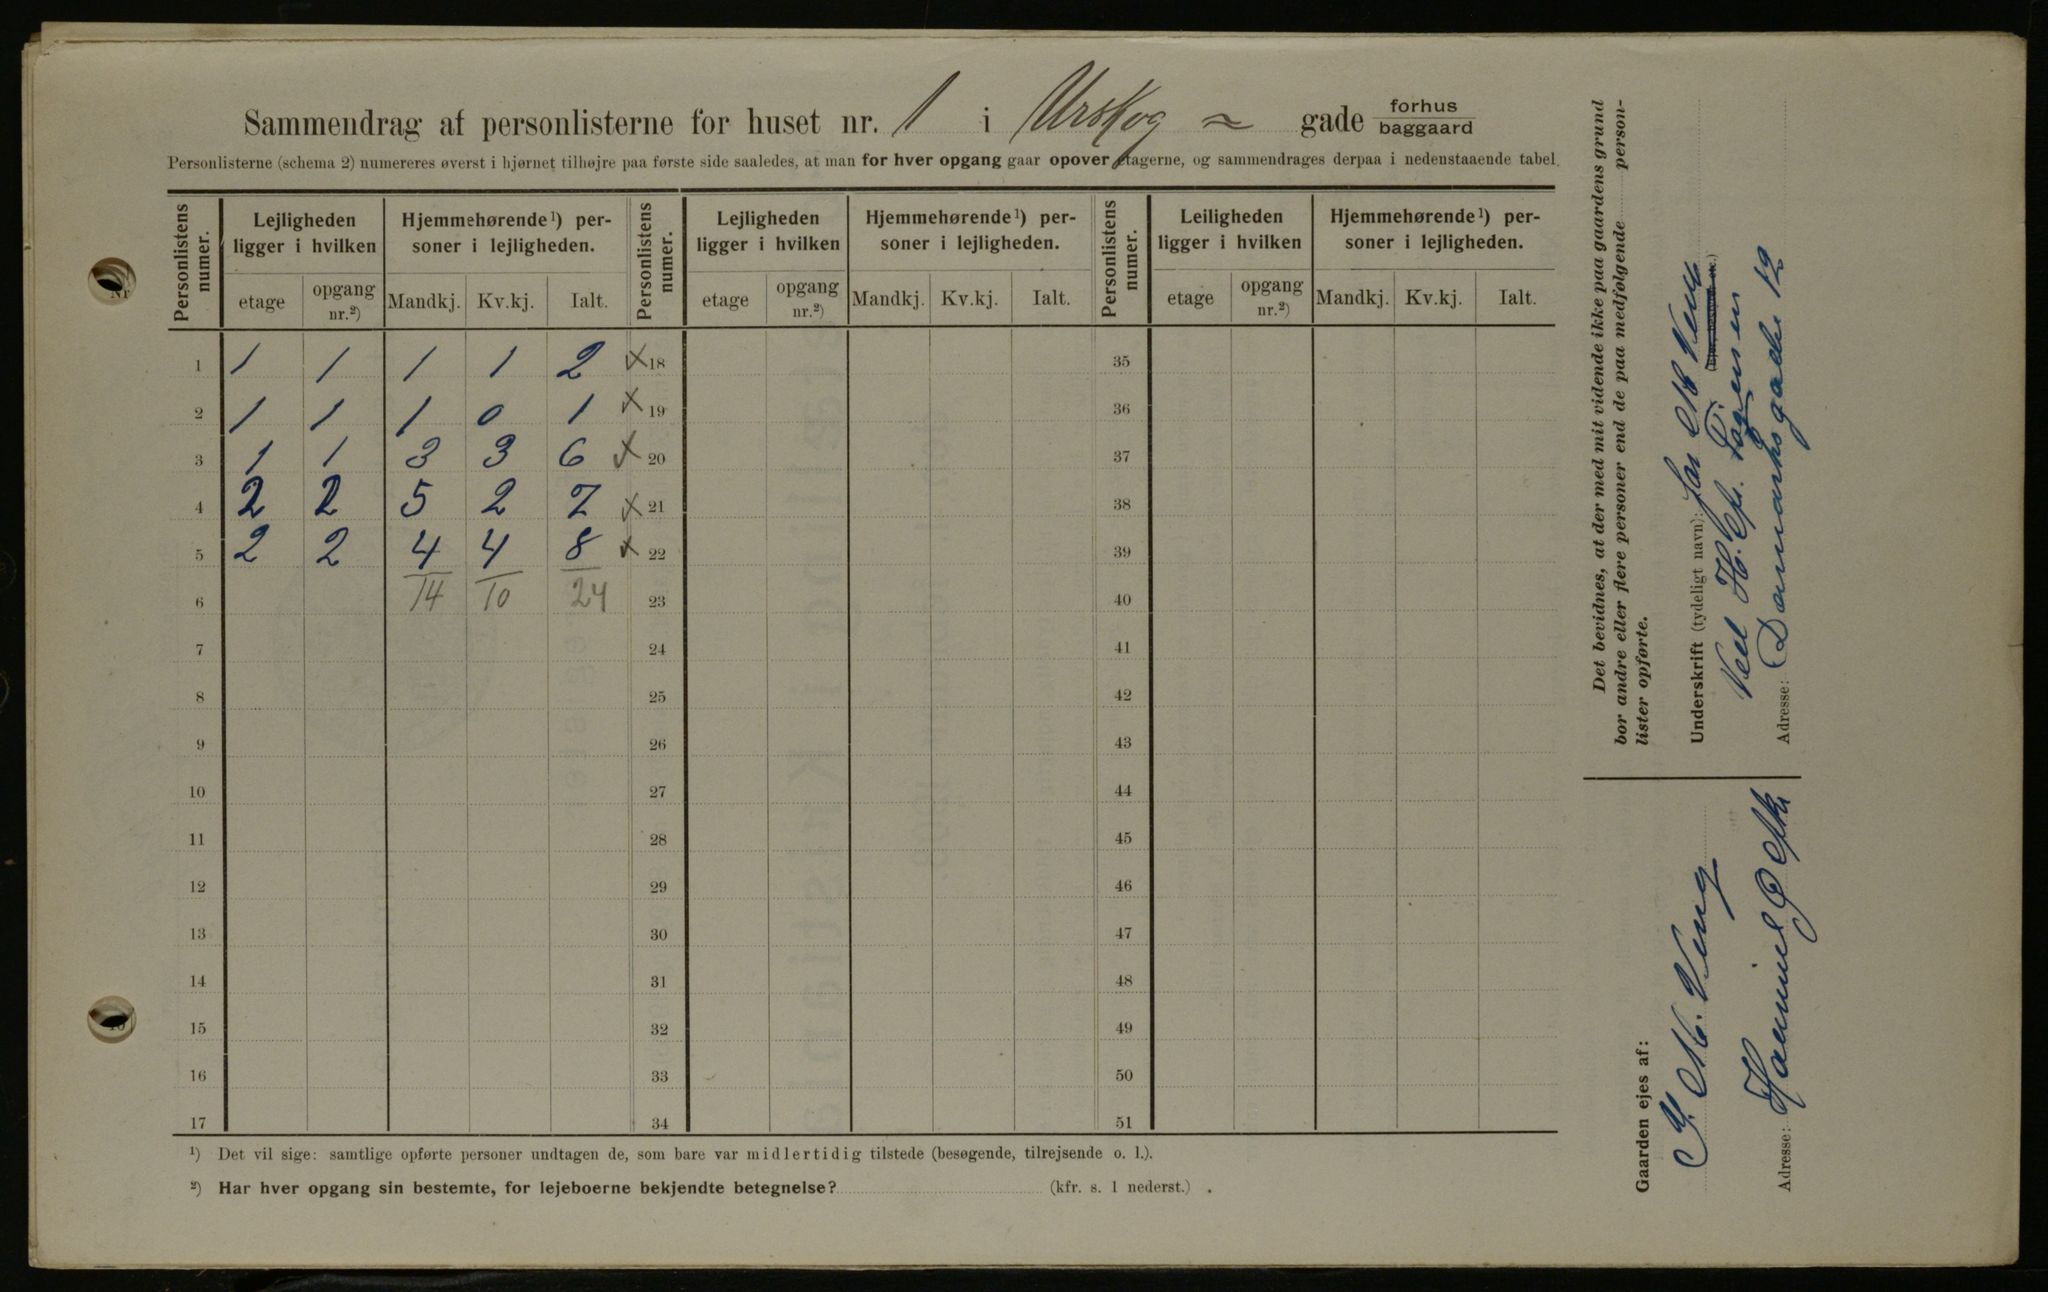 Sammendrag af personlisterne for huset nr. 1 i Urskog = gade forhus baggaard
Personlisterne (schema 2) numereres øverst i hjørnet tilhøjre paa første side saaledes, at man for hver opgang gaar opover etagerne, og sammendrages derpaa i nedenstaaende tabel.
Personlistens numer. Lejligheden ligger i hvilken Hjemmehørende ¹) personer i lejligheden. Personlistens numer. Lejligheden ligger i hvilken Hjemmehørende ¹) personer i lejligheden. Personlistens numer. Leiligheden ligger i hvilken Hjemmehørende ¹) personer i lejligheden.
etage opgang nr.²) Mandkj. Kv.kj. Ialt. etage opgang nr.²) Mandkj. Kv.kj. Ialt. etage opgang nr.²) Mandkj. Kv.kj. Ialt.
1 1 1 1 1 2 x 18 35
2 1 1 1 0 1 x 19 36
3 1 1 3 3 6 x 20 37
4 2 2 5 2 7 x 21 38
5 2 2 4 4 8 x 22 39
6 14 10 24 23 40
7 24 41
8 25 42
9 26 43
10 27 44
11 28 45
12 29 46
13 30 47
14 31 48
15 32 49
16 33 50
17 34 51
¹) Det vil sige: samtlige opførte personer undtagen de, som bare var midlertidig tilstede (besøgende, tilrejsende o. l.).
²) Har hver opgang sin bestemte, for lejeboerne bekjendte betegnelse? (kfr. s. 1 nederst.)
Det bevidnes, at der med mit vidende ikke paa gaardens grund
bor andre eller flere personer end de paa medfølgende person-
lister opførte.
Underskrift (tydeligt navn):
Ved H. Chr.
Adresse: Danmarksgade 12
Gaarden ejes af:
Adresse: